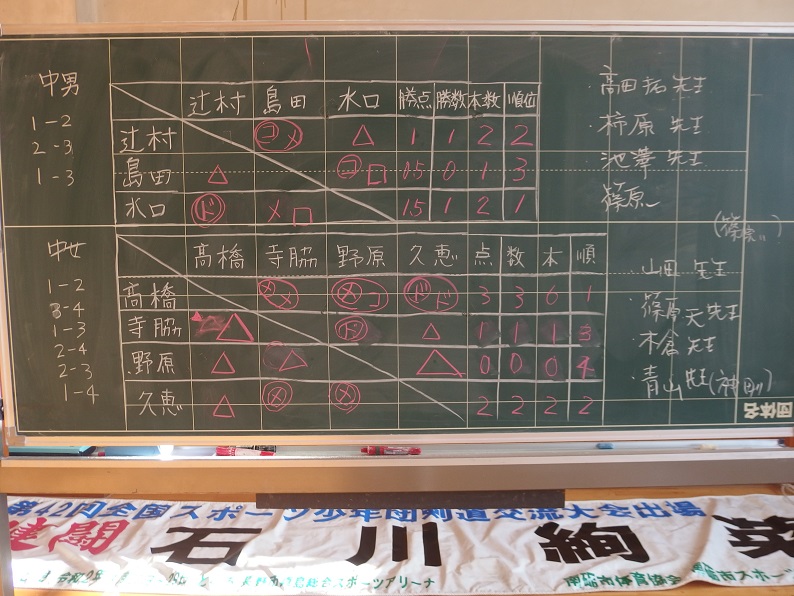 中男
1-2
2-3
1-3
辻村 島田 水口 勝点 勝数 本数 順位
辻村 コメ △ 1 1 2 2
島田 △ コ□ 0.5 0 1 3
水口 ド メ□ 1.5 1 2 1
高田拓先生
柿原先生
池澤先生
篠原
中女
1-2
3-4
1-3
2-4
2-3
1-4
髙橋 寺脇 野原 久恵 点 数 本 順
髙橋 メメ メコ ドド 3 3 6 1
寺脇 △ ド △ 1 1 1 3
野原 △ △ △ 0 0 0 4
久恵 △ メ メ 2 2 2 2
山田先生
篠原天先生
木倉先生
青山先生
団体名
第42回全国スポーツ少年団剣道交流大会出場
健闘 石川絢